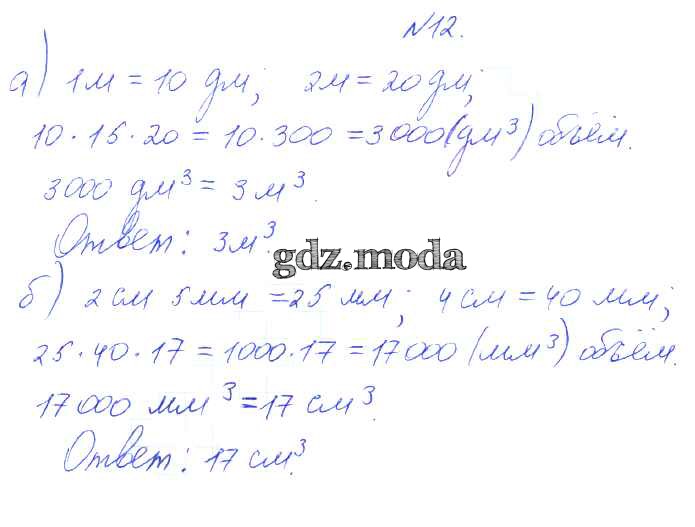 №12.
а) 1м = 10 дм; 2м = 20 дм;
10·15·20 = 10·300 = 3000 (дм³) объём.
3000 дм³ = 3 м³.
Ответ: 3м³.
gdz.moda
б) 2 см 5 мм = 25 мм; 4 см = 40 мм;
25·40·17 = 1000·17 = 17000 (мм³) объём.
17000 мм³ = 17 см³.
Ответ: 17 см³.